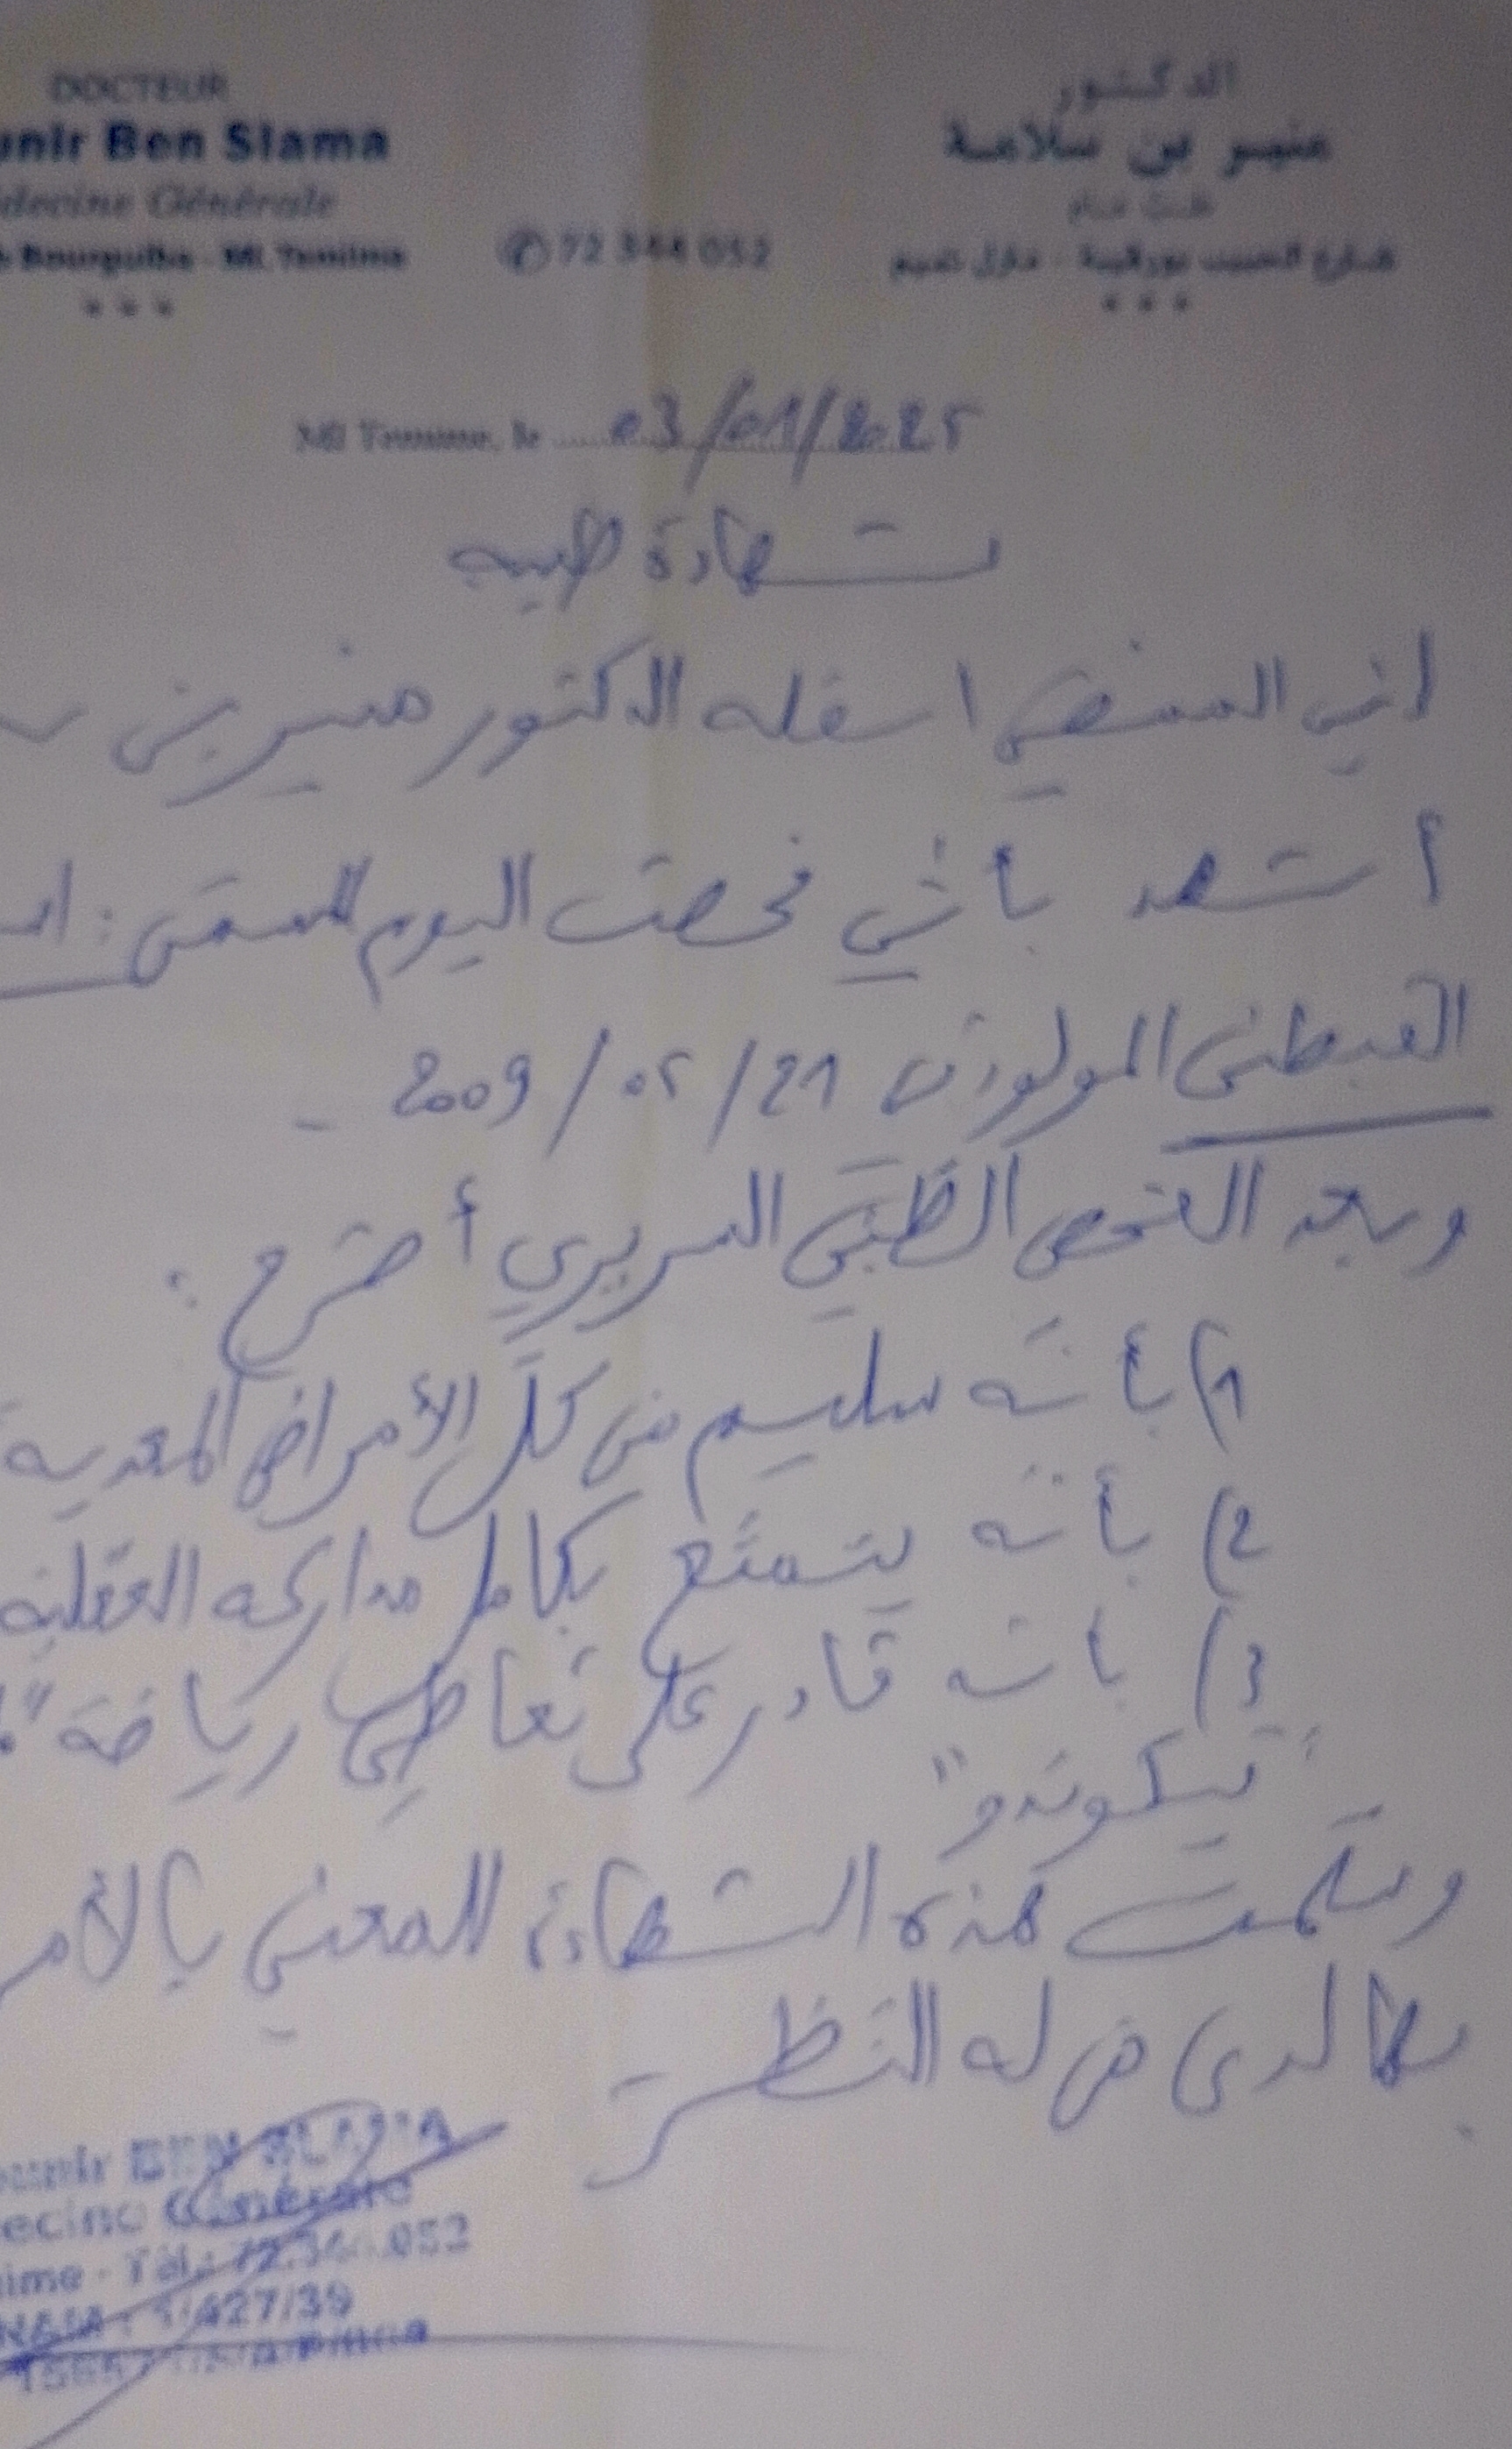 DOCTEUR
unir Ben Slama
decine Générale
b Bourguiba - Ml. Temime
* * *
✆ 72 344 052
الدكتور
منير بن سلامة
طب عام
شارع الحبيب بورقيبة - منزل تميم
* * *
Ml Temime, le 03/01/2025
شهادة طبية
إني الممضي اسفله الدكتور منير بن
أشهد بأنّي فحصت اليوم المسمّى :
المولود في 21/05/2009 -
وبعد الفحص الطّبّي السريري أصرح :
1) بأنّه سليم من كلّ الأمراض المعدية
2) بأنّه يتمتّع بكامل مداركه العقلية
3) بأنه قادر على تعاطي رياضة "
"تيكوندو"
وسلّمت هذه الشهادة للمعني بالأمر
بها لدى من له النّظر
ounir BEN SLAMA
ecine Générale
ime - Tél.: 72.344.052
1/427/39